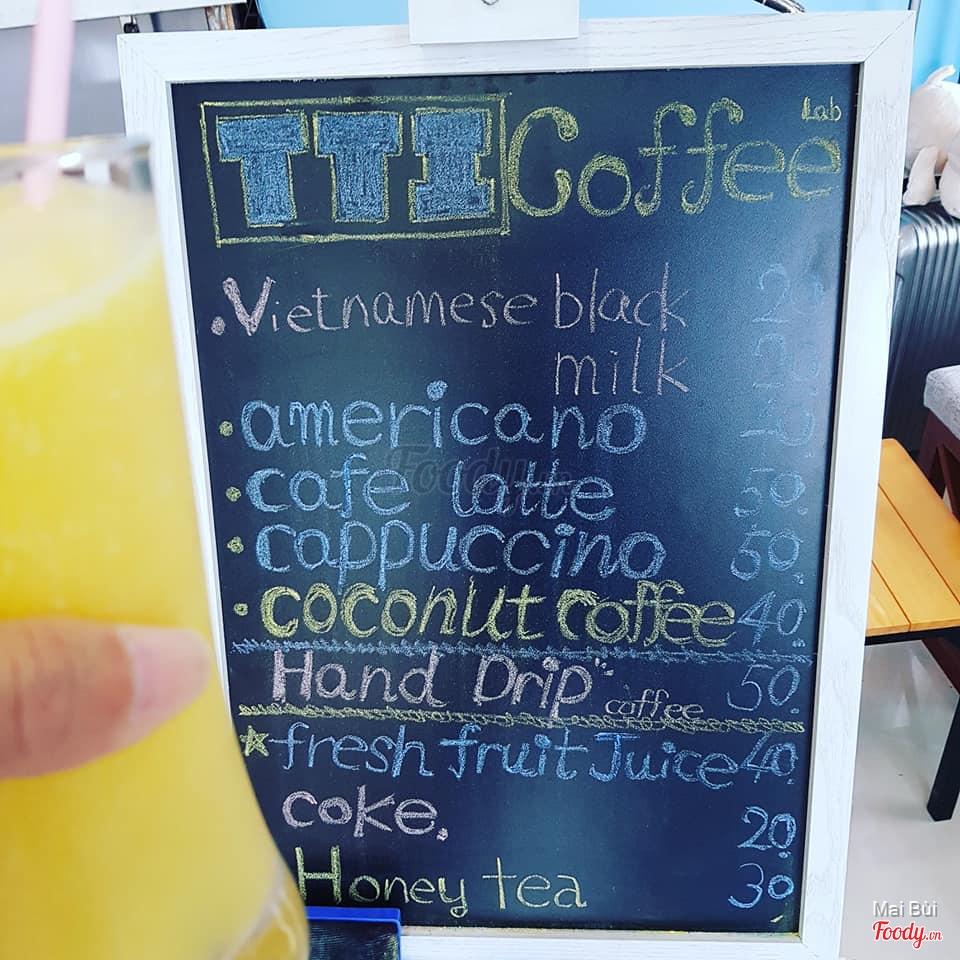 TTI Coffee Lab
• Vietnamese black
milk
• americano
• cafe latte 50.
• cappuccino 50.
• coconut coffee 40.
Hand Drip coffee 50.
☆ fresh fruit Juice 40.
coke. 20.
Honey tea 30.
Foody.vn
Mai Bùi
Foody.vn